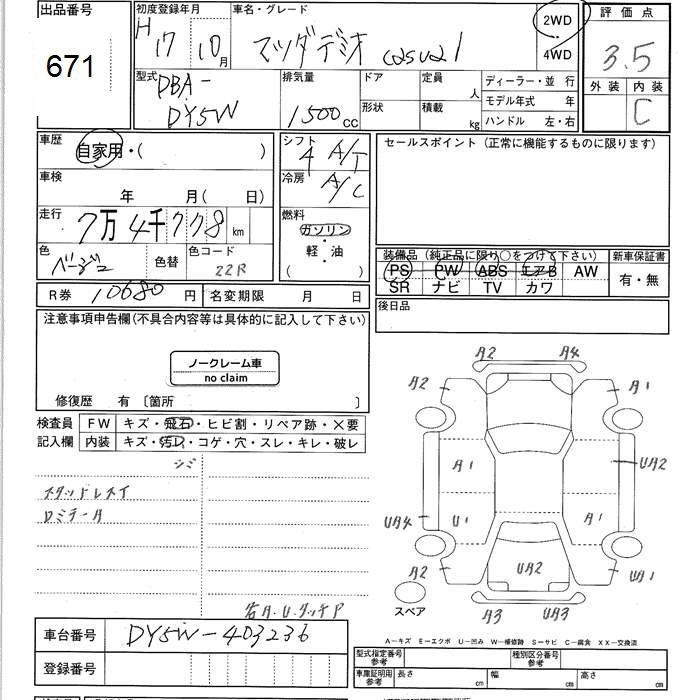 出品番号
671
初度登録年月
H17 10月
車名・グレード
マツダデミオ casual
2WD
・
4WD
評価点
3.5
外装 内装
C
型式
DBA-
DY5W
排気量
1500cc
ドア
形状
定員
人
積載
kg
ディーラー・並 行
モデル年式 年
ハンドル 左・右
車歴
自家用・( )
車検
年 月( 日)
走行
7万4千778km
色
ベージュ
色替
色コード
22R
シフト
4 A/T
冷房
A/C
燃料
ガソリン
軽・油
( )
セールスポイント (正常に機能するものに限ります)
装備品 (純正品に限り○をつけて下さい)
PS PW ABS エアB AW
SR ナビ TV カワ
新車保証書
有・無
R券 10680円
名変期限 月 日
後日品
注意事項申告欄(不具合内容等は具体的に記入して下さい)
ノークレーム車
no claim
修復歴 有 〔箇所 〕
検査員
記入欄
FW キズ・飛石・ヒビ割・リペア跡・×要
内装 キズ・汚レ・コゲ・穴・スレ・キレ・破レ
シミ
スタッドレスタイ
ロミラーA
A2 A4
A2 A1
A1 UA2
UA4 U1 A1
A2 UA2 UA1
スペア
A3 UA3
各A.U.タッチP
A-キズ E-エクボ U-凹み W-補修跡 S-サビ C-腐食 XX-交換済
車台番号 DY5W-403236
登録番号
型式指定番号
参考
種別区分番号
参考
車庫証明用
参考
長さ cm
幅 cm
高さ cm